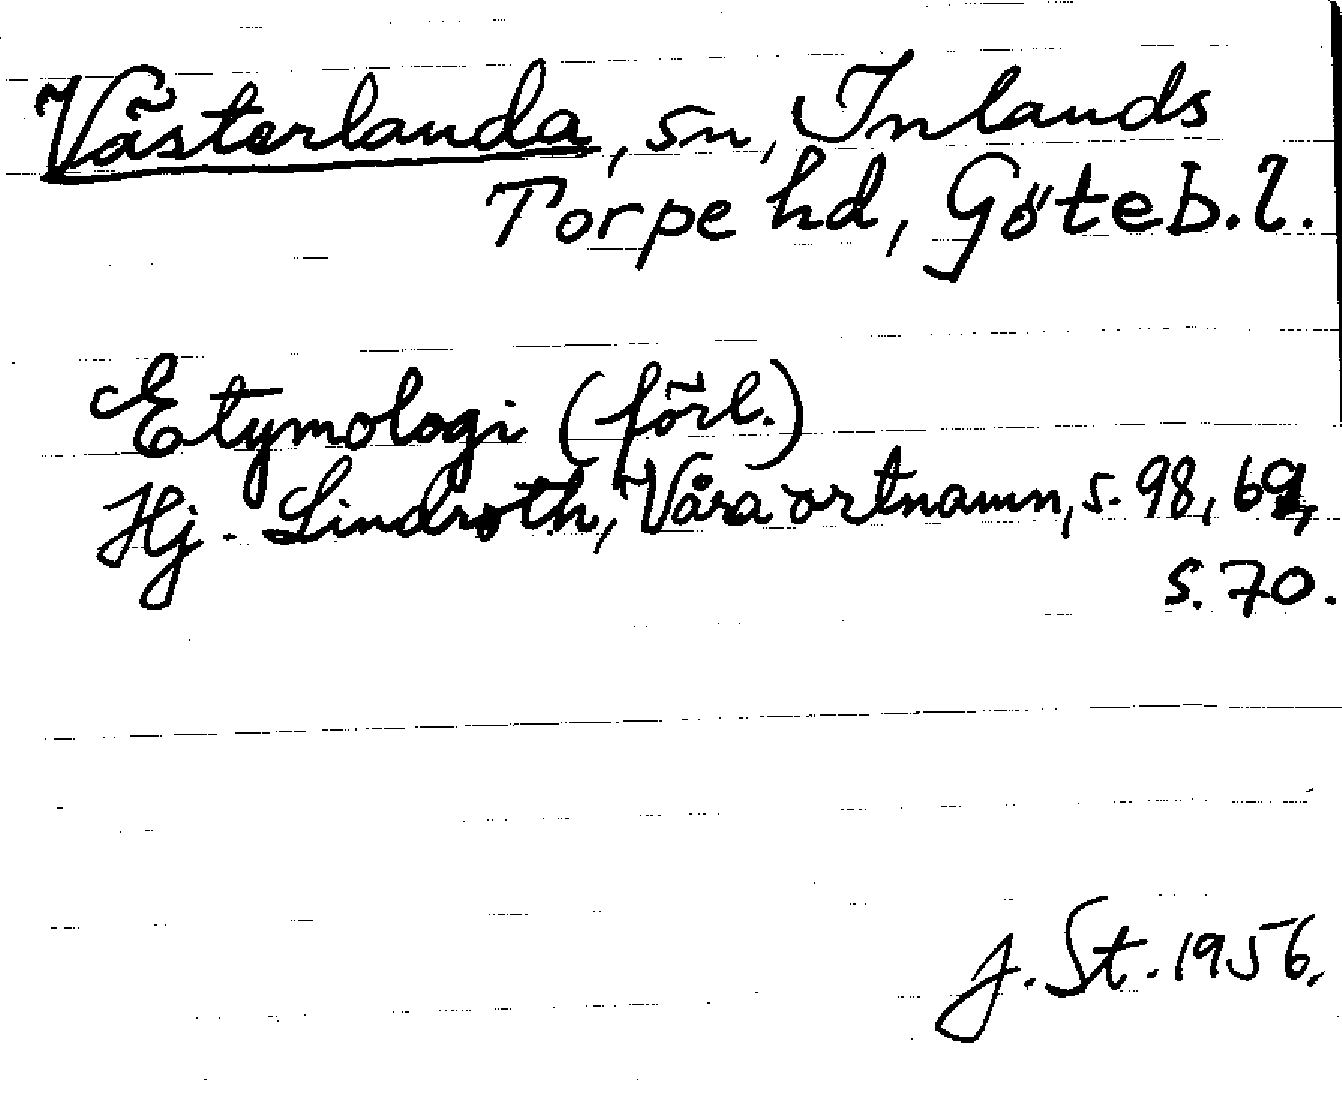 Västerlanda, sn, Inlands
Torpe hd, Göteb. l.
Etymologi (förl.)
Hj. Lindroth, Våra ortnamn, s. 98, 69,
s. 70.
J. St. 1956.